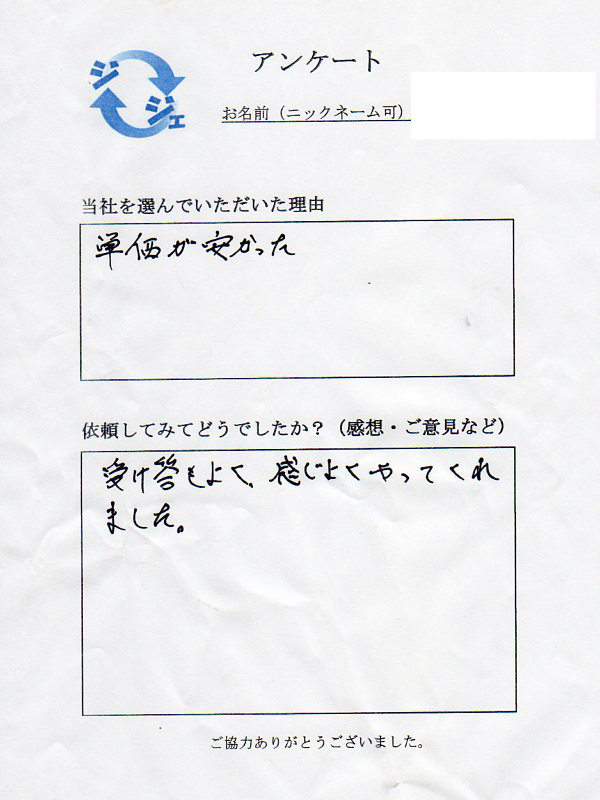 ジジェ
アンケート
お名前(ニックネーム可)
当社を選んでいただいた理由
単価が安かった
依頼してみてどうでしたか?(感想・ご意見など)
受け答もよく、感じよくやってくれ
ました。
ご協力ありがとうございました。